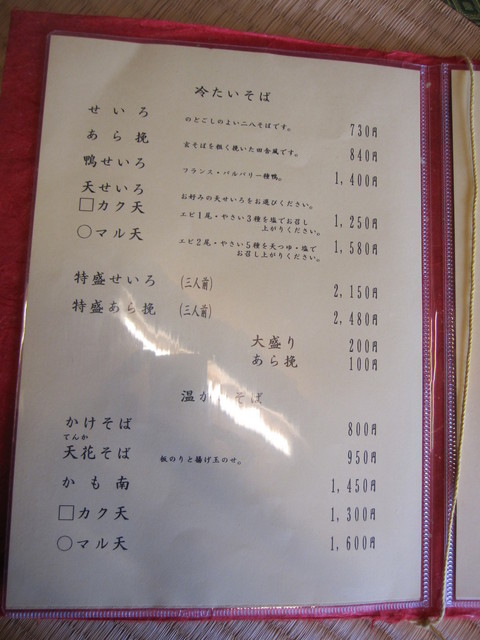 冷たいそば
せいろ のどごしのよい二八そばです。 730円
あら挽 玄そばを粗く挽いた田舎風です。 840円
鴨せいろ フランス・バルバリー種鴨。 1,400円
天せいろ お好みの天せいろをお選びください。
□カク天 エビ1尾・やさい3種を塩でお召し上がりください。 1,250円
○マル天 エビ2尾・やさい5種を天つゆ・塩でお召し上がりください。 1,580円
特盛せいろ (三人前) 2,150円
特盛あら挽 (三人前) 2,480円
大盛り 200円
あら挽 100円
温か そば
かけそば 800円
てんか
天花そば 板のりと揚げ玉のせ。 950円
かも南 1,450円
□カク天 1,300円
○マル天 1,600円